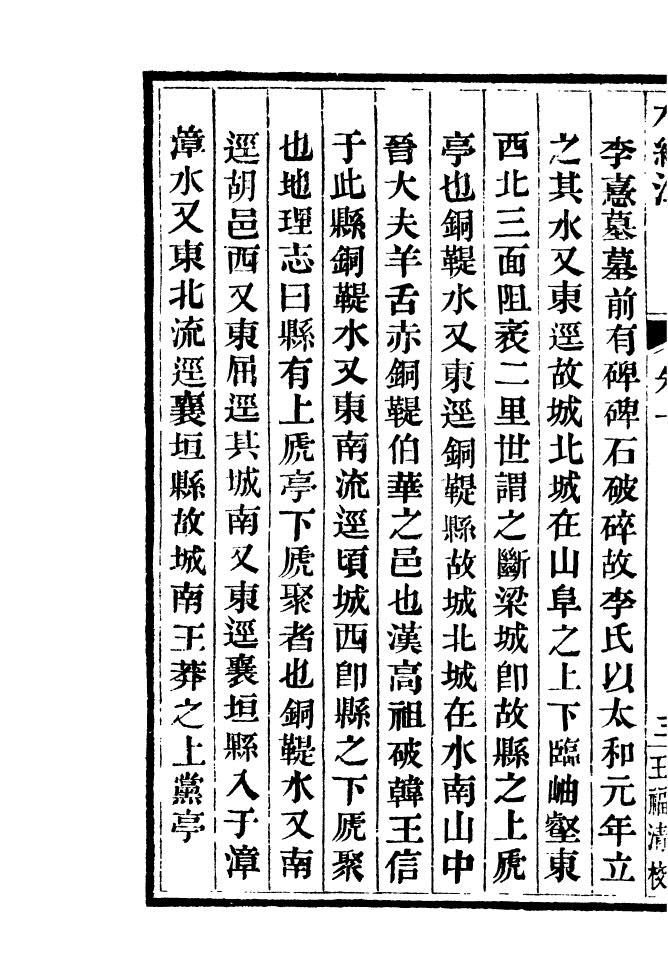 李憙墓墓前有碑碑石破碎故李氏以太和元年立
之其水又東逕故城北城在山阜之上下臨岫壑東
西北三面阻袤二里世謂之斷梁城卽故縣之上虒
亭也銅鞮水又東逕銅鞮縣故城北城在水南山中
晉大夫羊舌赤銅鞮伯華之邑也漢高祖破韓王信
于此縣銅鞮水又東南流逕頃城西卽縣之下虒聚
也地理志曰縣有上虒亭下虒聚者也銅鞮水又南
逕胡邑西又東屈逕其城南又東逕襄垣縣入于漳
漳水又東北流逕襄垣縣故城南王莽之上黨亭